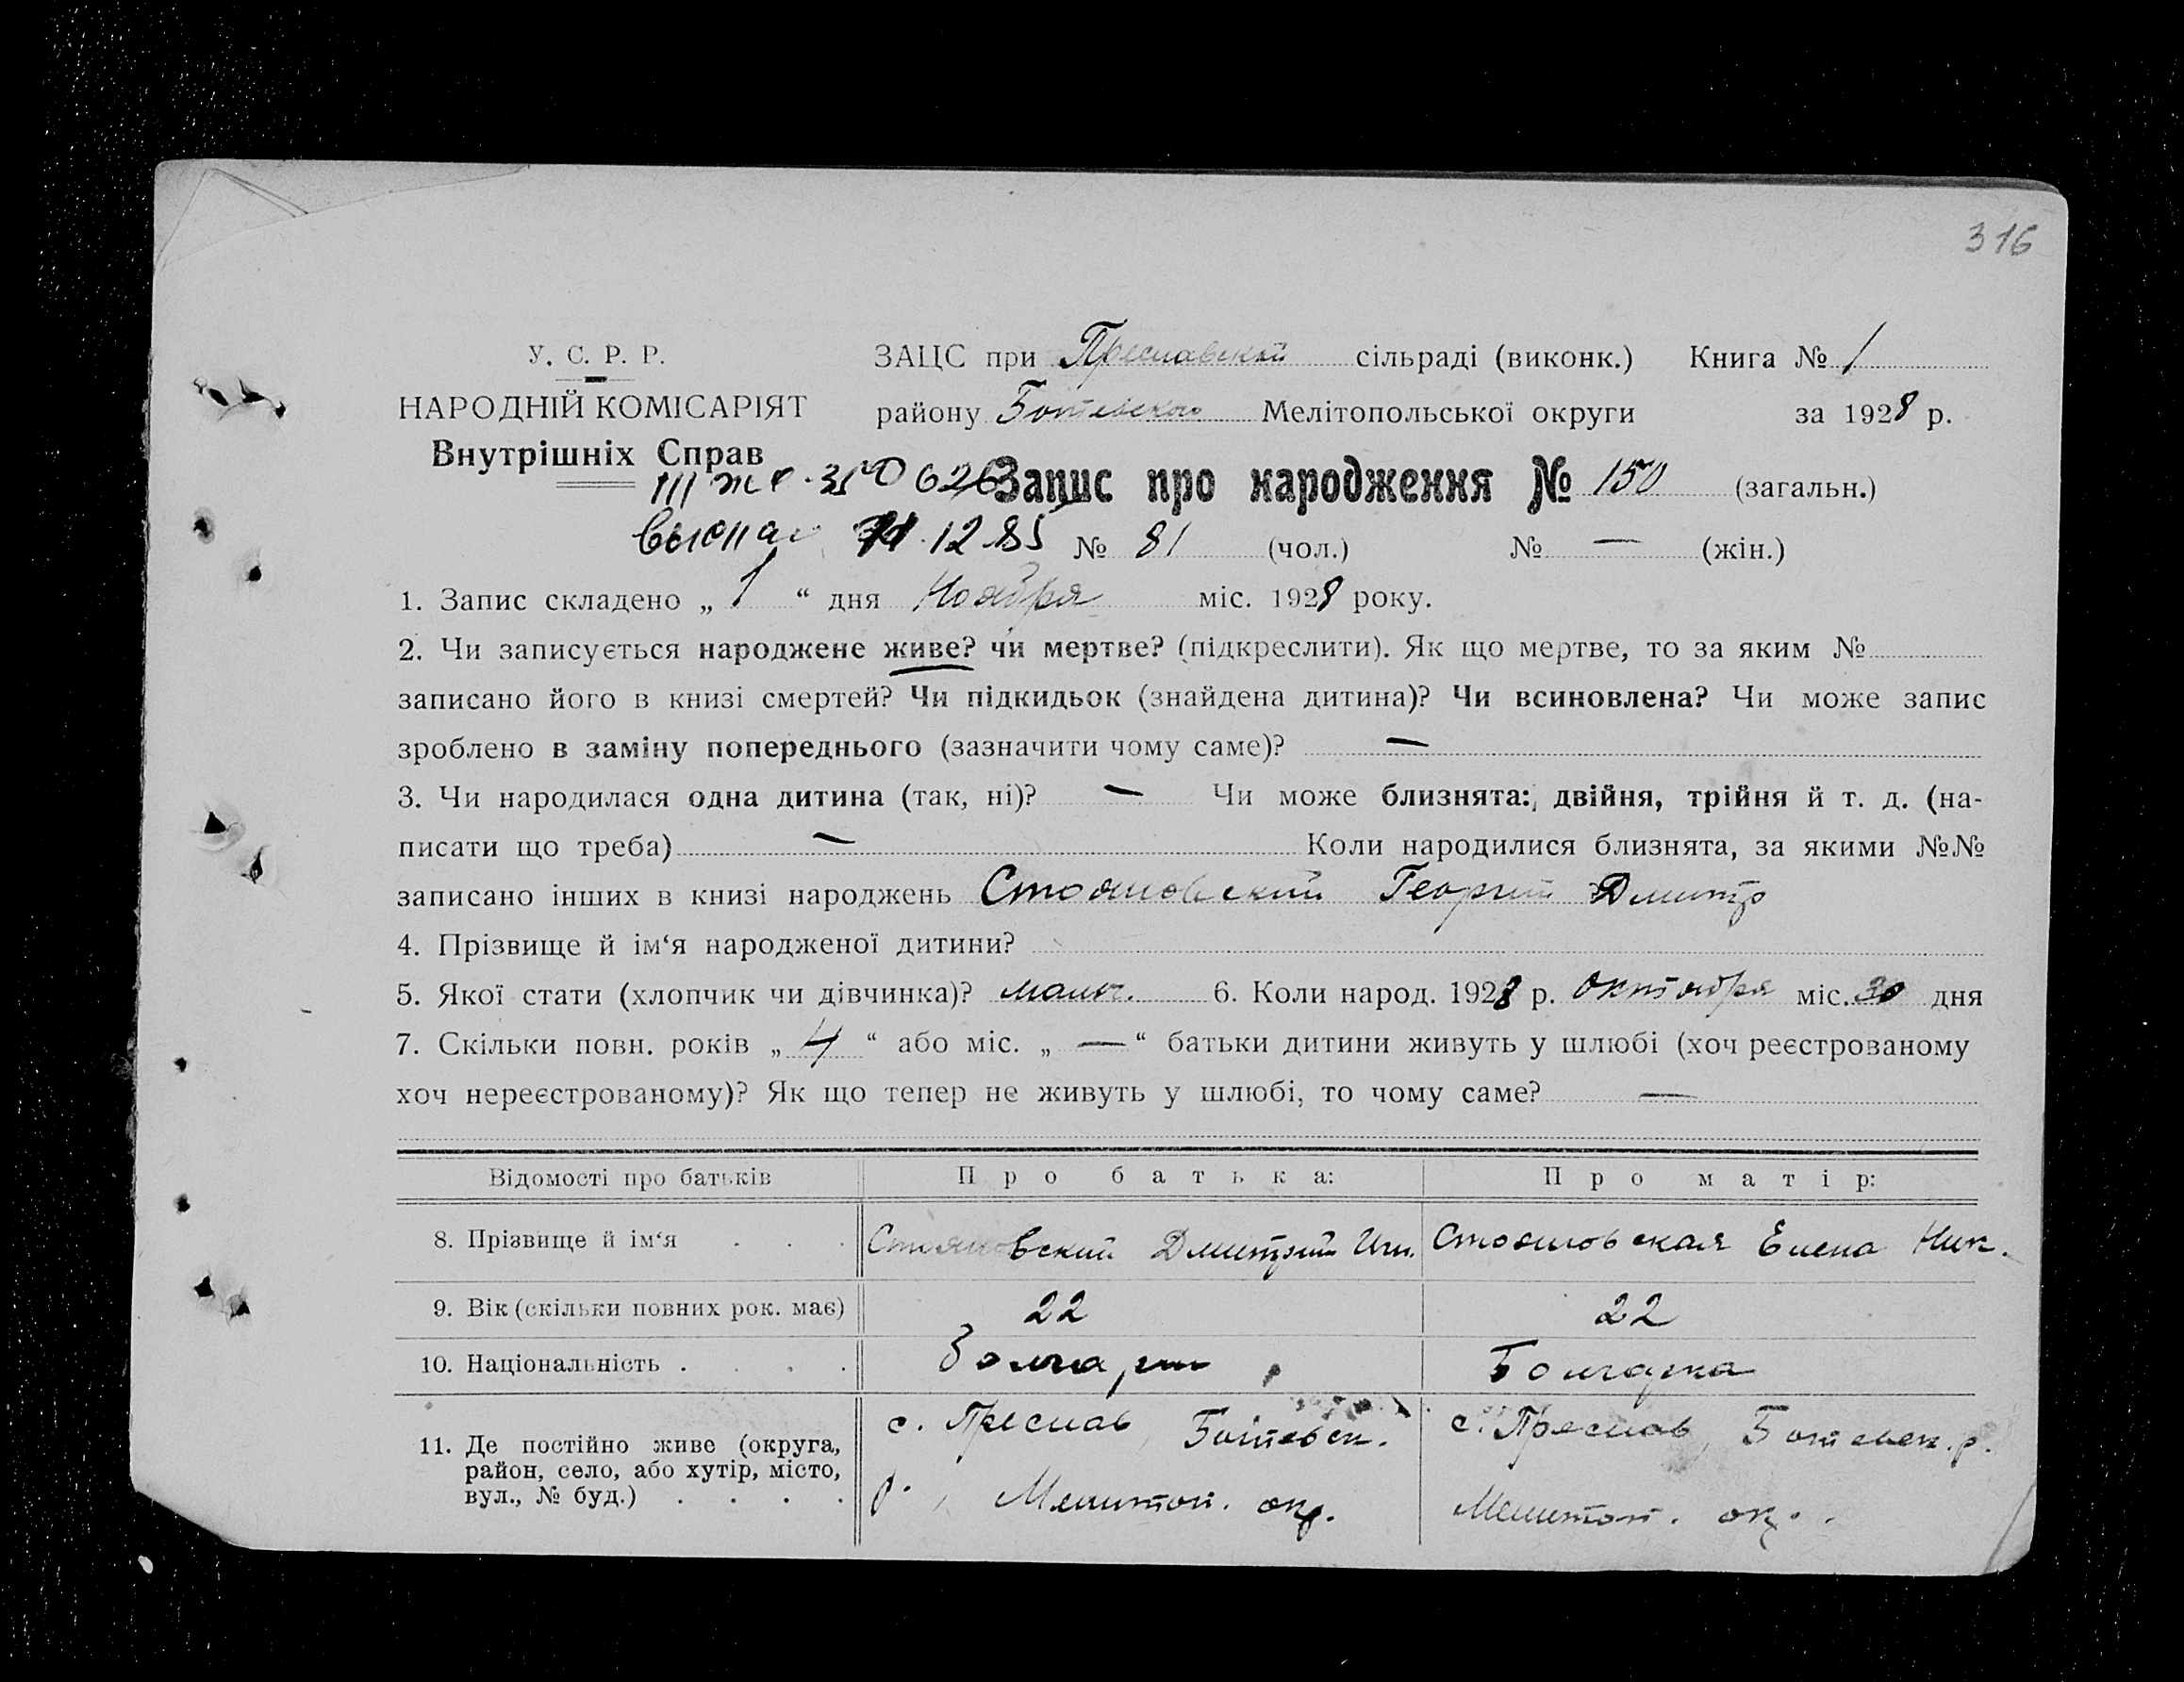 316
У. С. Р. Р.
НАРОДНІЙ КОМІСАРІЯТ
Внутрішніх Справ
ЗАЦС при Преславской сільраді (виконк.) Книга № 1
району Ботевского Мелітопольської округи за 1928 р.
626 Запис про народження № 150 (загальн.)
12.85 № 81 (чол.) № — (жін.)
1. Запис складено „ 1 “ дня Ноября міс. 1928 року.
2. Чи записується народжене живе? чи мертве? (підкреслити). Як що мертве, то за яким №
записано його в книзі смертей? Чи підкидьок (знайдена дитина)? Чи всиновлена? Чи може запис
зроблено в заміну попереднього (зазначити чому саме)? —
3. Чи народилася одна дитина (так, ні)? — Чи може близнята: двійня, трійня й т. д. (на-
писати що треба) — Коли народилися близнята, за якими №№
записано інших в книзі народжень Стояновский Георгий Дмитр
4. Прізвище й ім‘я народженої дитини?
5. Якої стати (хлопчик чи дівчинка)? мальч. 6. Коли народ. 1928 р. Октября міс. 30 дня
7. Скільки повн. років „ 4 “ або міс. „ — “ батьки дитини живуть у шлюбі (хоч реєстрованому
хоч нереєстрованому)? Як що тепер не живуть у шлюбі, то чому саме? —
Відомості про батьків Про батька: Про матір:
8. Прізвище й ім‘я . . . Стояновский Дмитрий Стояновская Елена Ник.
9. Вік (скільки повних рок. має) 22 22
10. Національність . . . . Болгарин Болгарка
11. Де постійно живе (округа,
район, село, або хутір, місто,
вул., № буд.) . . . .
с. Преслав, Ботевск.
р., Мелитоп. окр.
с. Преслав, Ботевск. р.
Мелитоп. ок.